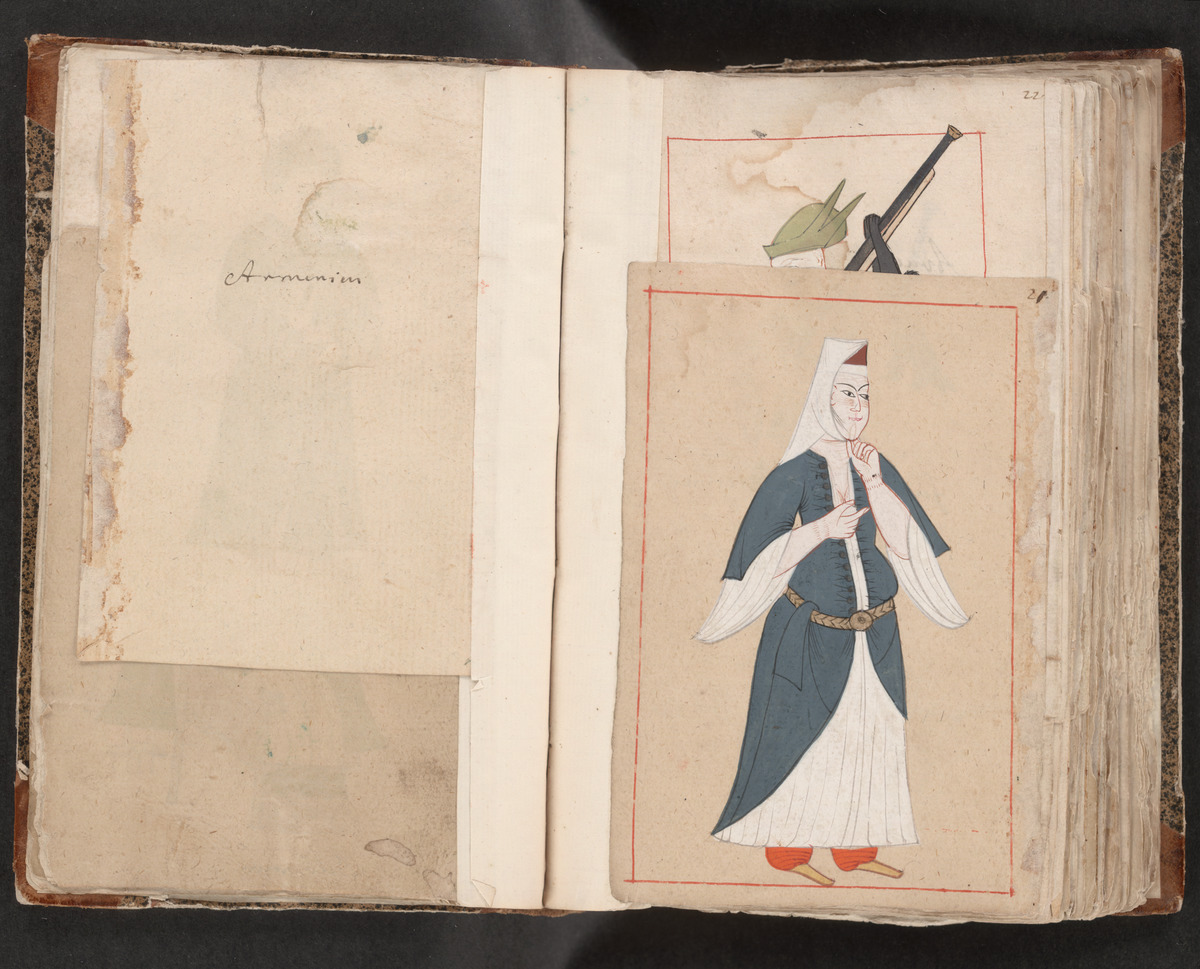 Armenien
22
21